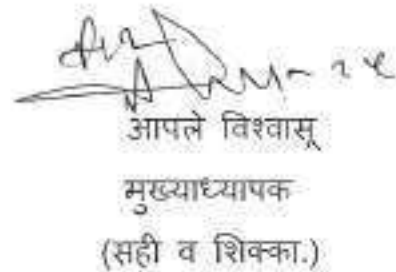 आपले विश्वासू
मुख्याध्यापक
(सही व शिक्का.)